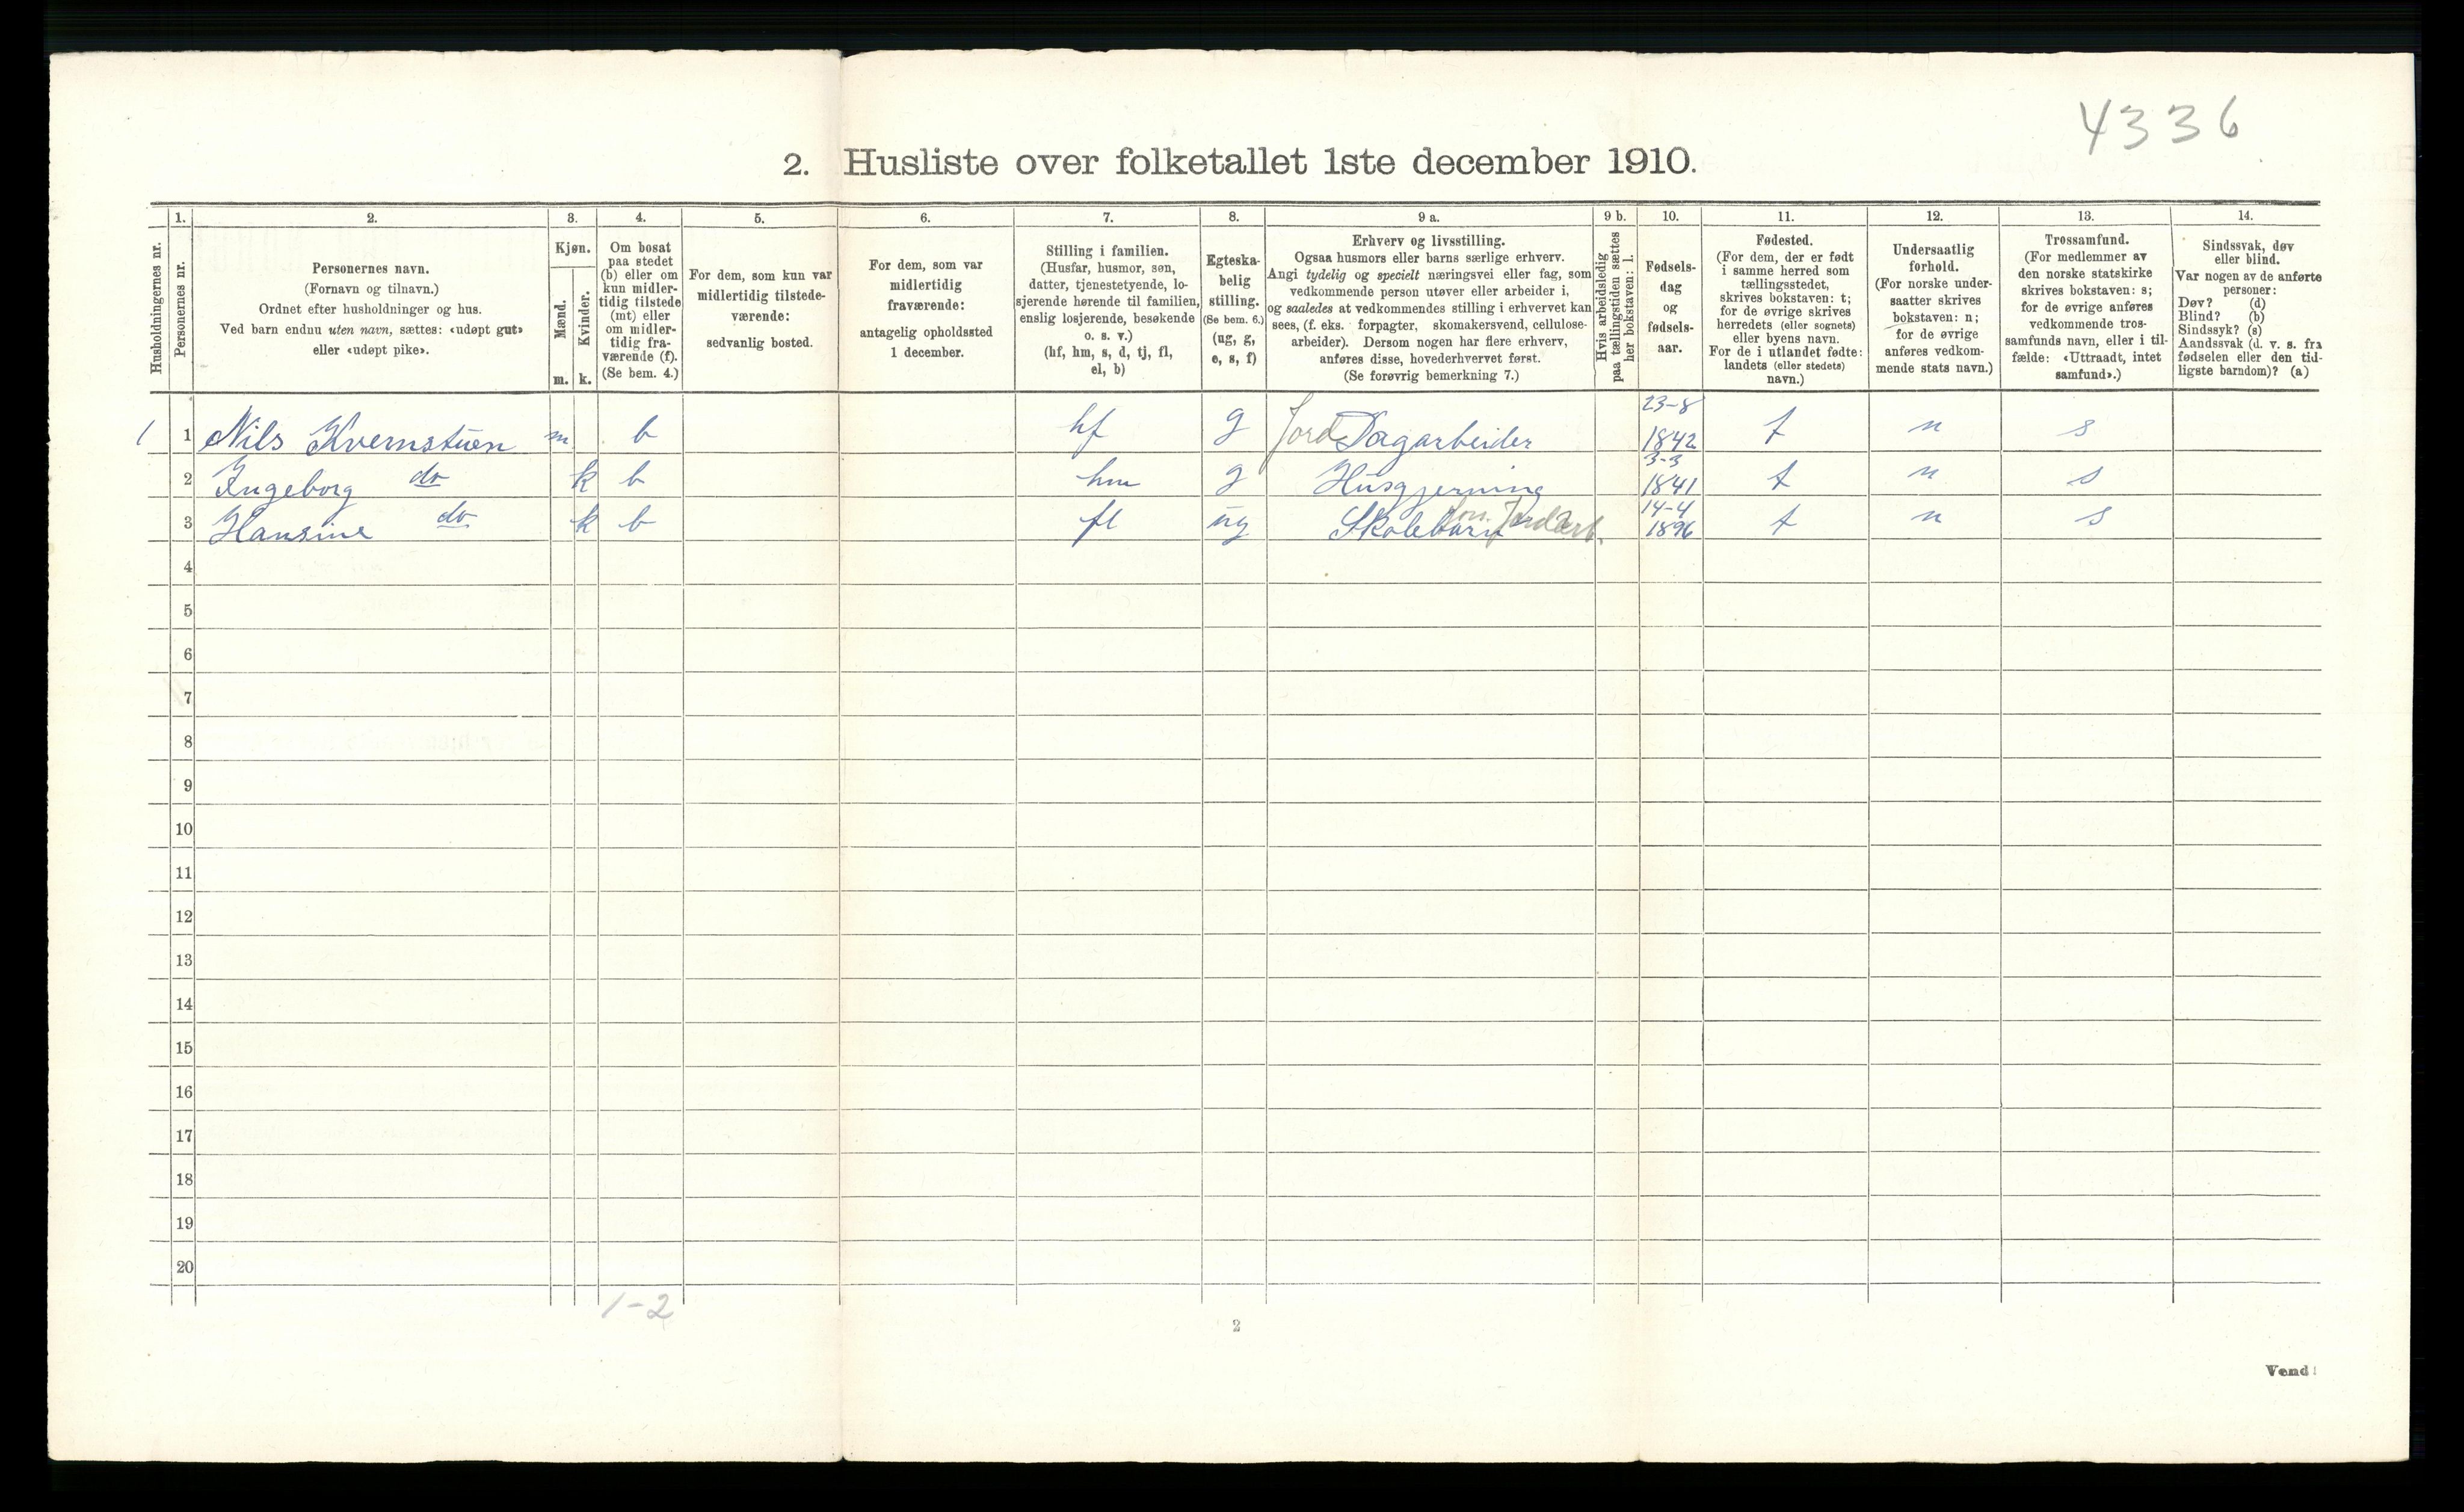 4336
2. Husliste over folketallet 1ste december 1910.
Husholdningernes nr.
1.
Personernes nr.
2.
Personernes navn.
(Fornavn og tilnavn.)
Ordnet efter husholdninger og hus.
Ved barn endnu uten navn, sættes: «udøpt gut»
eller «udøpt pike».
3.
Kjøn.
Mænd.
m.
Kvinder.
k.
4.
Om bosat
paa stedet
(b) eller om
kun midler-
tidig tilstede
(mt) eller
om midler-
tidig fra-
værende (f).
(Se bem. 4.)
5.
For dem, som kun var
midlertidig tilstede-
værende:
sedvanlig bosted.
6.
For dem, som var
midlertidig
fraværende:
antagelig opholdssted
1 december.
7.
Stilling i familien.
(Husfar, husmor, søn,
datter, tjenestetyende, lo-
sjerende hørende til familien,
enslig losjerende, besøkende
o. s. v.)
(hf, hm, s, d, tj, fl,
el, b)
8.
Egteska-
belig
stilling.
(Se bem. 6.)
(ug, g,
e, s, f)
9 a.
Erhverv og livsstilling.
Ogsaa husmors eller barns særlige erhverv.
Angi tydelig og specielt næringsvei eller fag, som
vedkommende person utøver eller arbeider i,
og saaledes at vedkommendes stilling i erhvervet kan
sees, (f. eks. forpagter, skomakersvend, cellulose-
arbeider). Dersom nogen har flere erhverv,
anføres disse, hovederhvervet først.
(Se forøvrig bemerkning 7.)
9 b.
Hvis arbeidsledig
paa tællingstiden sættes
her bokstaven: l.
10.
Fødsels-
dag
og
fødsels-
aar.
11.
Fødested.
(For dem, der er født
i samme herred som
tællingsstedet,
skrives bokstaven: t;
for de øvrige skrives
herredets (eller sognets)
eller byens navn.
For de i utlandet fødte:
landets (eller stedets)
navn.)
12.
Undersaatlig
forhold.
(For norske under-
saatter skrives
bokstaven: n;
for de øvrige
anføres vedkom-
mende stats navn.)
13.
Trossamfund.
(For medlemmer av
den norske statskirke
skrives bokstaven: s;
for de øvrige anføres
vedkommende tros-
samfunds navn, eller i til-
fælde: «Uttraadt, intet
samfund».)
14.
Sindssvak, døv
eller blind.
Var nogen av de anførte
personer:
Døv? (d)
Blind? (b)
Sindssyk? (s)
Aandssvak (d. v. s. fra
fødselen eller den tid-
ligste barndom)? (a)
1 1 Nils Kvernstuen m b hf g Jord Dagarbeider 23-8 1842 t n s
2 Ingeborg do k b hm g Husgjerning 3-3 1841 t n s
3 Hansine do k b fl ug Skolebarn 14-4 1896 t n s
4
5
6
7
8
9
10
11
12
13
14
15
16
17
18
19
20
1-2
2
Vend!